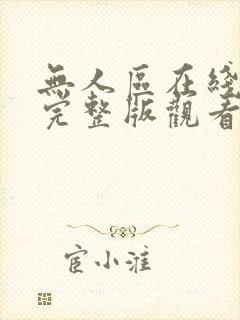 無人區在綫
完整版觀看
宦小淮